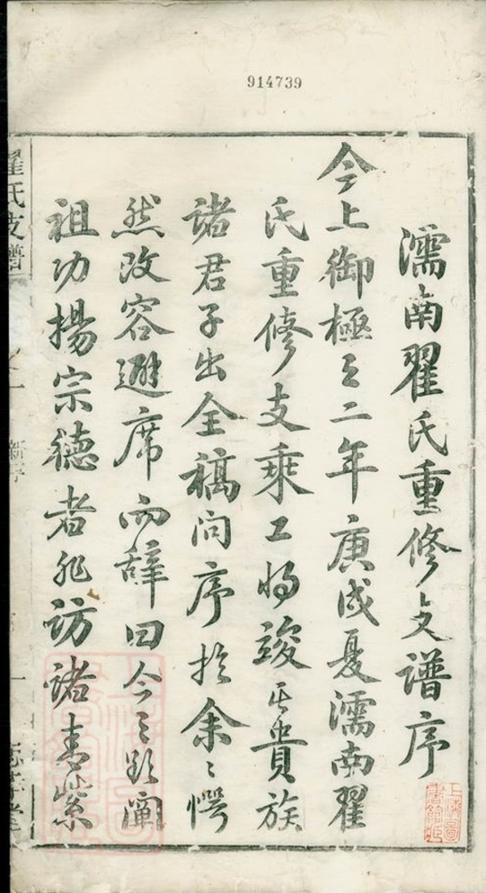 914739
濡南翟氏重修支譜序
今上御極之二年庚戌夏濡南翟
氏重修支乘工將竣其貴族
諸君子出全稿问序於余〻愕
然改容避席而辞曰今之欲阐
祖功揚宗德者非訪諸青紫
翟氏支譜
新序
上海圖書館藏